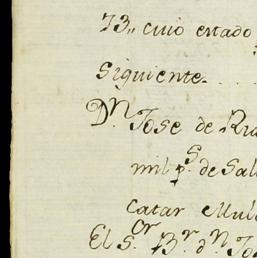 73,, cuio estado
Siguiente.
Dn. Jose de Ru
mil ps. de Sal
catar Mul
El Sor. Br. dn. Jo